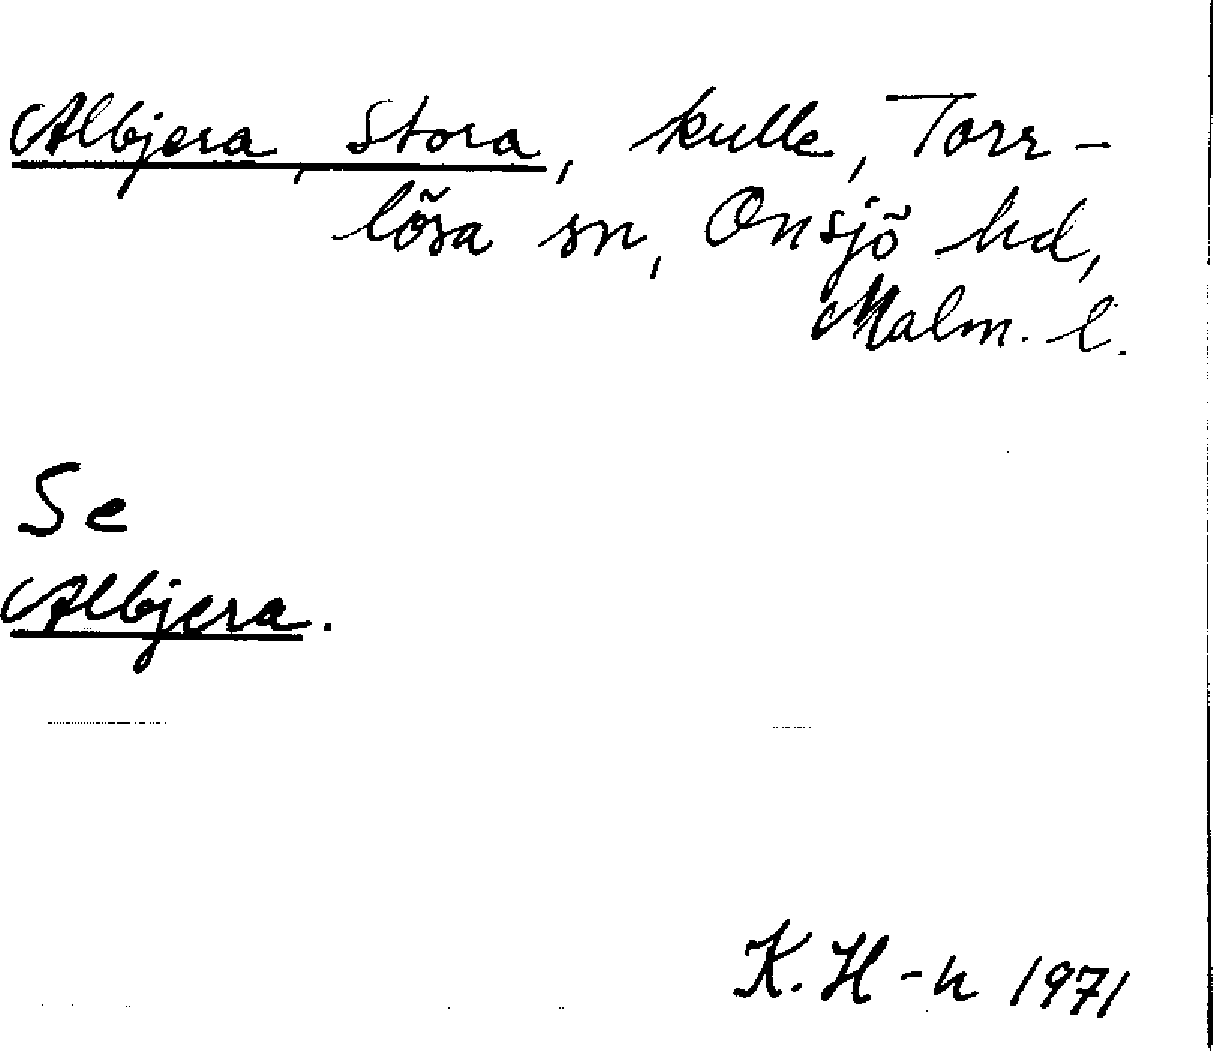 Albjera, Stora, kulle, Torr-
lösa sn, Onsjö hd,
Malm. l.
Se
Albjera.
K. H-n 1971